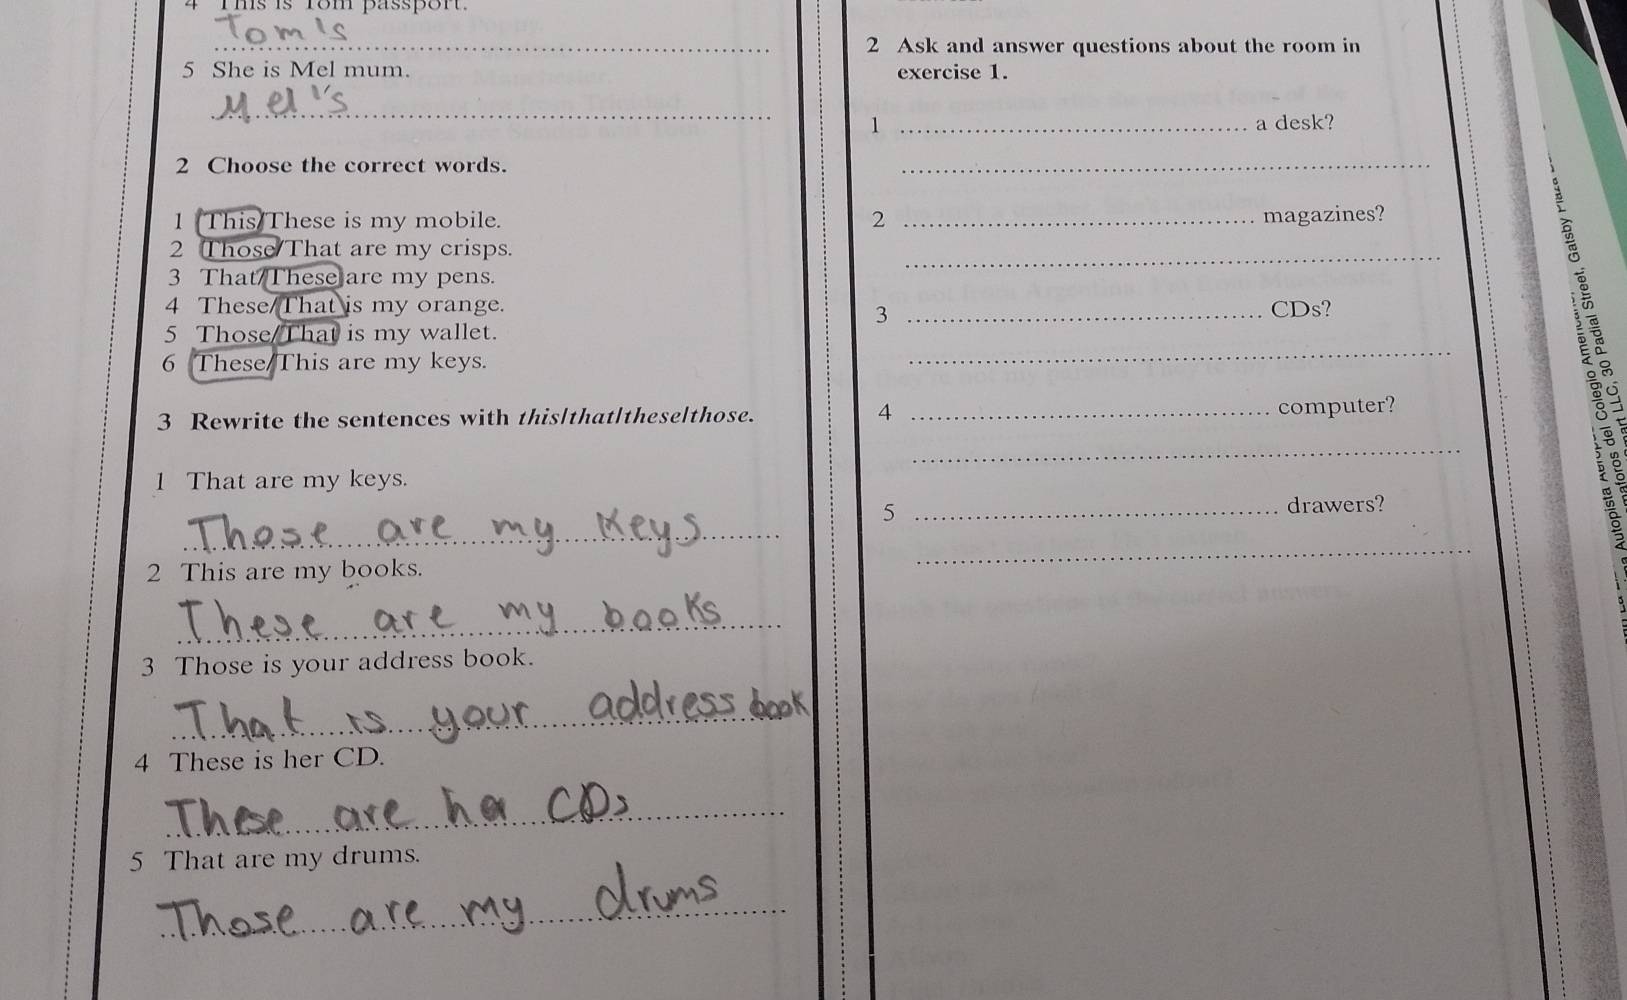 4 This is Tom passport.
Tom's
5 She is Mel mum.
Mel's
2 Choose the correct words.
1 This/These is my mobile.
2 Those/That are my crisps.
3 That/These are my pens.
4 These/That is my orange.
5 Those/That is my wallet.
6 These/This are my keys.
3 Rewrite the sentences with this/that/these/those.
1 That are my keys.
Those are my keys
2 This are my books.
These are my books
3 Those is your address book.
That is your address book
4 These is her CD.
These are her CDs
5 That are my drums.
Those are my drums
2 Ask and answer questions about the room in
exercise 1.
1 a desk?
2 magazines?
3 CDs?
4 computer?
5 drawers?
Autopista del Colegio
30 Padial Street, Gatsby Plaza